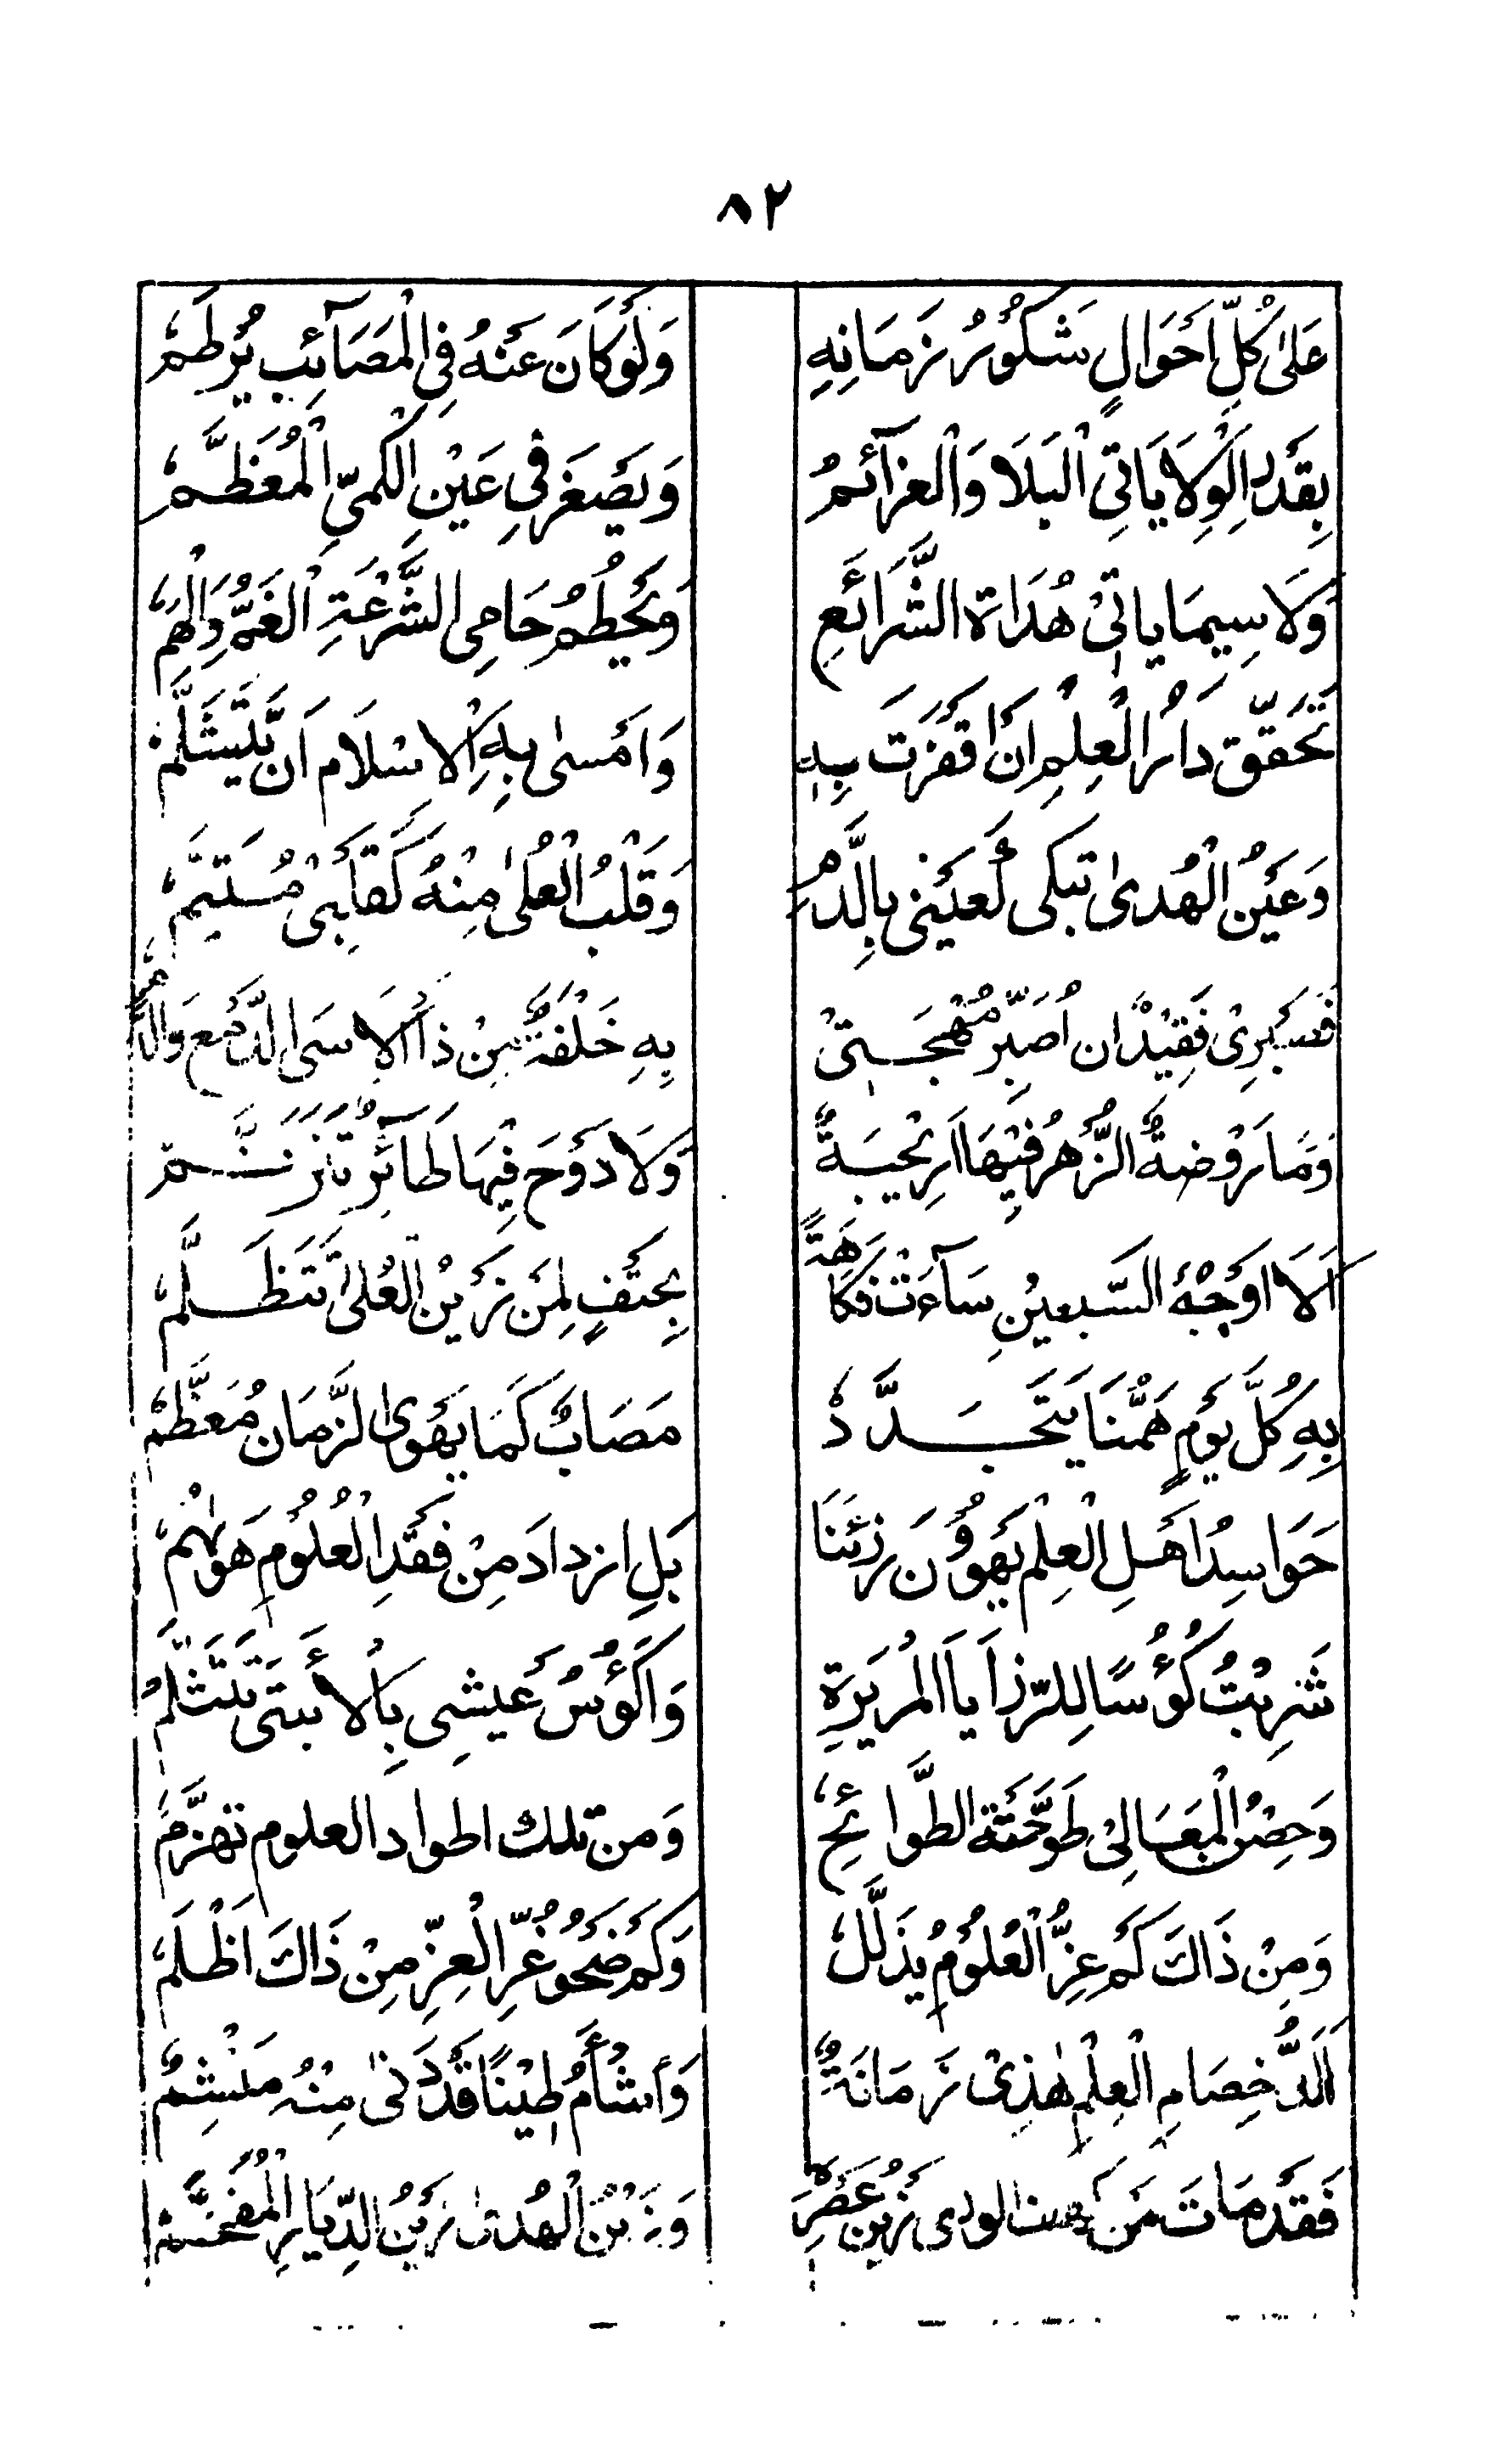 ٨٢
عَلىٰ كُلِّ اَحْوَالٍ شَكُوْرُ زَمَانِهِ وَلَوْ كَانَ عَنْهُ فِي الْمَصَآئِبِ يُرْطَمُ
بِقَدْرِ الْوِلَا يَاتِي الْبَلَا وَالْعزَآئمُ وَيَصْغَرُ فِي عَيْنِ الْكَمِيِّ الْمُعَظَّمُ
وَلَا سِيمَا يَاتِيْ هُدَاةَ الشَّرَائَعِ وَيَحْطِمُ حَامِي الشَّرْعَةِ الْغَمُّ وَالْهَمُّ
تَحَقَّقَ دَارُ الْعِلْمِ اِنْ اَقْفَرَتْ بِهٖ وَاَمْسىٰ بِهِ الْاِسْلَام اَنْ يَّتَثَلَّمُ
وَعَيْنُ الْهُدىٰ تبكي لَعَيْنِي بِالدَّمِ وَقَلْبُ الْعُلىٰ مِنْهُ كَقَلْبِيْ مُتَيَّمُ
فقيْدٌ ان اُصَبِّرَ مُهْجَتِيْ بِهِ خَلْفَةٌ مِنْ ذَا الْاَسَى الدَّمْعُ وَالدَّمُ
وَمَا رَوْضَةُ الزُّهْرُ فِيْهَا اَرِيْحِيَةٌ وَلَا دَوْحَ فِيْهَا طَآئِرٌ يَتَرَنَّمُ
اَلَا اَوْجُهُ السَّبعِيْنِ سَآءَتْ فكَاهَةً بِحَتْفٍ لِمَنْ زَيْنُ الْعُلىٰ تَتَظَلَّمُ
بِهِ كُلَّ يَوْمٍ هَمُّنَا يَتَجَدَّدُ مَصَابٌ كَمَا يَهْوىٰ الزَّمَان مُعَظَّمُ
حَوَاسِدُ اَهْلِ الْعِلْمِ يَهْوُوْنَ رُزْئَنَا بَلِ ازدَادَ مِنْ فَقْدِ الْعُلُوْمِ هَوٰىهُمُ
شَرِبْتُ كُؤُسًا لِلرَّزَايَا الْمُرِيْرَةِ وَاَكْؤُسُ عَيشِي بِالْأَسىٰ تَتَثَلَّمُ
وَحِصْنُ الْمَعَالِيْ طَوَّحَتْهُ الطَّوَائِحُ وَمن تلك اطواد العلوم تهزَّمُ
وَمِنْ ذَاكَ كَمْ عِزُّ الْعُلُوْمُ يذَلَّلُ وَكَمْ ضَحْوُ غُرِّ الْعِزِّ مِنْ ذَاكَ اَظْلَمُ
اَلَدُّ خِصَامِ الْعِلْمِ هٰذِيْ زَمَانَةٌ وَاَشْأَمُ طِيْنًا قَدْ دَنىٰ مِنْهُ مَنْشِمُ
فَقَدْ مَاتَ مَن الورى زَيْنُ عَصْرِهٖ وَزَيْنُ الْهُدىٰ زَيْنُ الدِّيَارِ الْمُفَخَّمُ